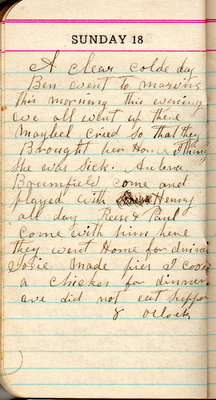 SUNDAY 18
A clear colde day
Ben went to marvins
this morning this evening
we all went up there
maybel cried so that they
Brought her Home I think
She was Sick.
Bloomfield come and
played with Henry
all day Rees & Paul
come with him here
they went Home for dinner
Josie made pies I cook
a chicken for dinner
we did not eat supper
8 oclock